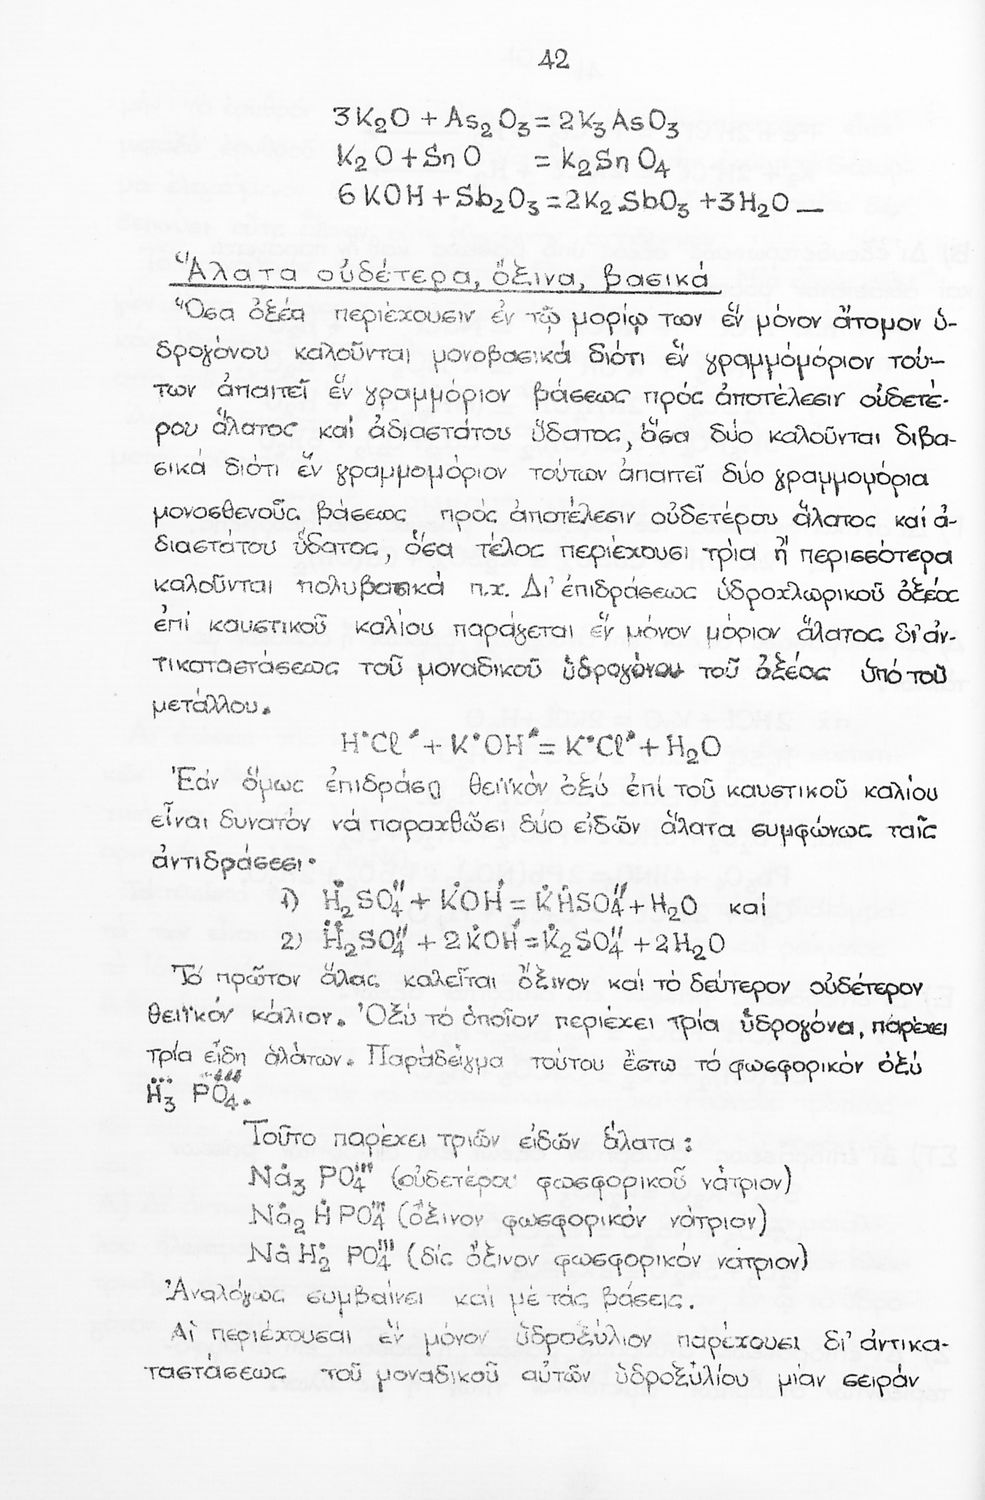 42
3K₂O + As₂O₃ = 2K₃AsO₃
K₂O + SnO = K₂SnO₄
6KOH + Sb₂O₃ = 2K₂SbO₃ + 3H₂O —
Ἅλατα οὐδέτερα, ὄξινα, βασικά
Ὅσα ὀξέα περιέχουσιν ἐν τῷ μορίῳ των ἕν μόνον ἄτομον ὑ-
δρογόνου καλοῦνται μονοβασικά διότι ἕν γραμμόμόριον τού-
των ἀπαιτεῖ ἕν γραμμόριον βάσεως πρός ἀποτέλεσιν οὐδετέ-
ρου ἅλατος καί ἀδιαστάτου ὕδατος, ὅσα δύο καλοῦνται διβα-
σικά διότι ἕν γραμμομόριον τούτων ἀπαιτεῖ δύο γραμμομόρια
μονοσθενοῦς βάσεως πρός ἀποτέλεσιν οὐδετέρου ἅλατος καί ἀ-
διαστάτου ὕδατος, ὅσα τέλος περιέχουσι τρία ἤ περισσότερα
καλοῦνται πολυβασικά π.χ. Δι' ἐπιδράσεως ὑδροχλωρικοῦ ὀξέος
ἐπί καυστικοῦ καλίου παράγεται ἕν μόνον μόριον ἅλατος δι' ἀν-
τικαταστάσεως τοῦ μοναδικοῦ ὑδρογόνου τοῦ ὀξέος ὑπό τοῦ
μετάλλου.
H˙Cl′ + K˙OH′ = K˙Cl′ + H₂O
Ἐάν ὅμως ἐπιδράσῃ θειϊκόν ὀξύ ἐπί τοῦ καυστικοῦ καλίου
εἶναι δυνατόν νά παραχθῶσι δύο εἰδῶν ἅλατα συμφώνως ταῖς
ἀντιδράσεσι·
1) Ḣ₂SO₄″ + K̇OH′ = K̇ḢSO₄″ + H₂O καί
2) Ḣ₂SO₄″ + 2K̇OH′ = K̇₂SO₄″ + 2H₂O
Τό πρῶτον ἅλας καλεῖται ὄξινον καί τό δεύτερον οὐδέτερον
θειϊκόν κάλιον. Ὀξύ τό ὁποῖον περιέχει τρία ὑδρογόνα, παρέχει
τρία εἴδη ἁλάτων. Παράδειγμα τούτου ἔστω τό φωσφορικόν ὀξύ
Ḧ₃ PO₄‴.
Τοῦτο παρέχει τριῶν εἰδῶν ἅλατα :
Nȧ₃ PO₄‴ (οὐδετέρου φωσφορικοῦ νάτριον)
Nȧ₂ Ḣ PO₄‴ (ὄξινον φωσφορικόν νάτριον)
Nȧ Ḣ₂ PO₄‴ (δίς ὄξινον φωσφορικόν νάτριον)
Ἀναλόγως συμβαίνει καί μέ τάς βάσεις.
Αἱ περιέχουσαι ἕν μόνον ὑδροξύλιον παρέχουσι δι' ἀντικα-
ταστάσεως τοῦ μοναδικοῦ αὐτῶν ὑδροξυλίου μίαν σειράν